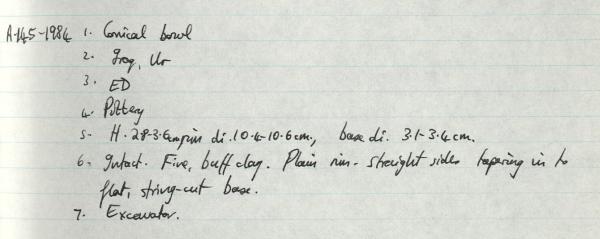 A.145-1984 1. Conical bowl
2. Iraq, Ur
3. ED
4. Pottery
5. H. 2.8-3.6cm, rim di. 10.4-10.6cm, base di. 3.1-3.4cm.
6. Intact. Fine, buff clay. Plain rim - straight sides tapering in to
flat, string-cut base.
7. Excavator.